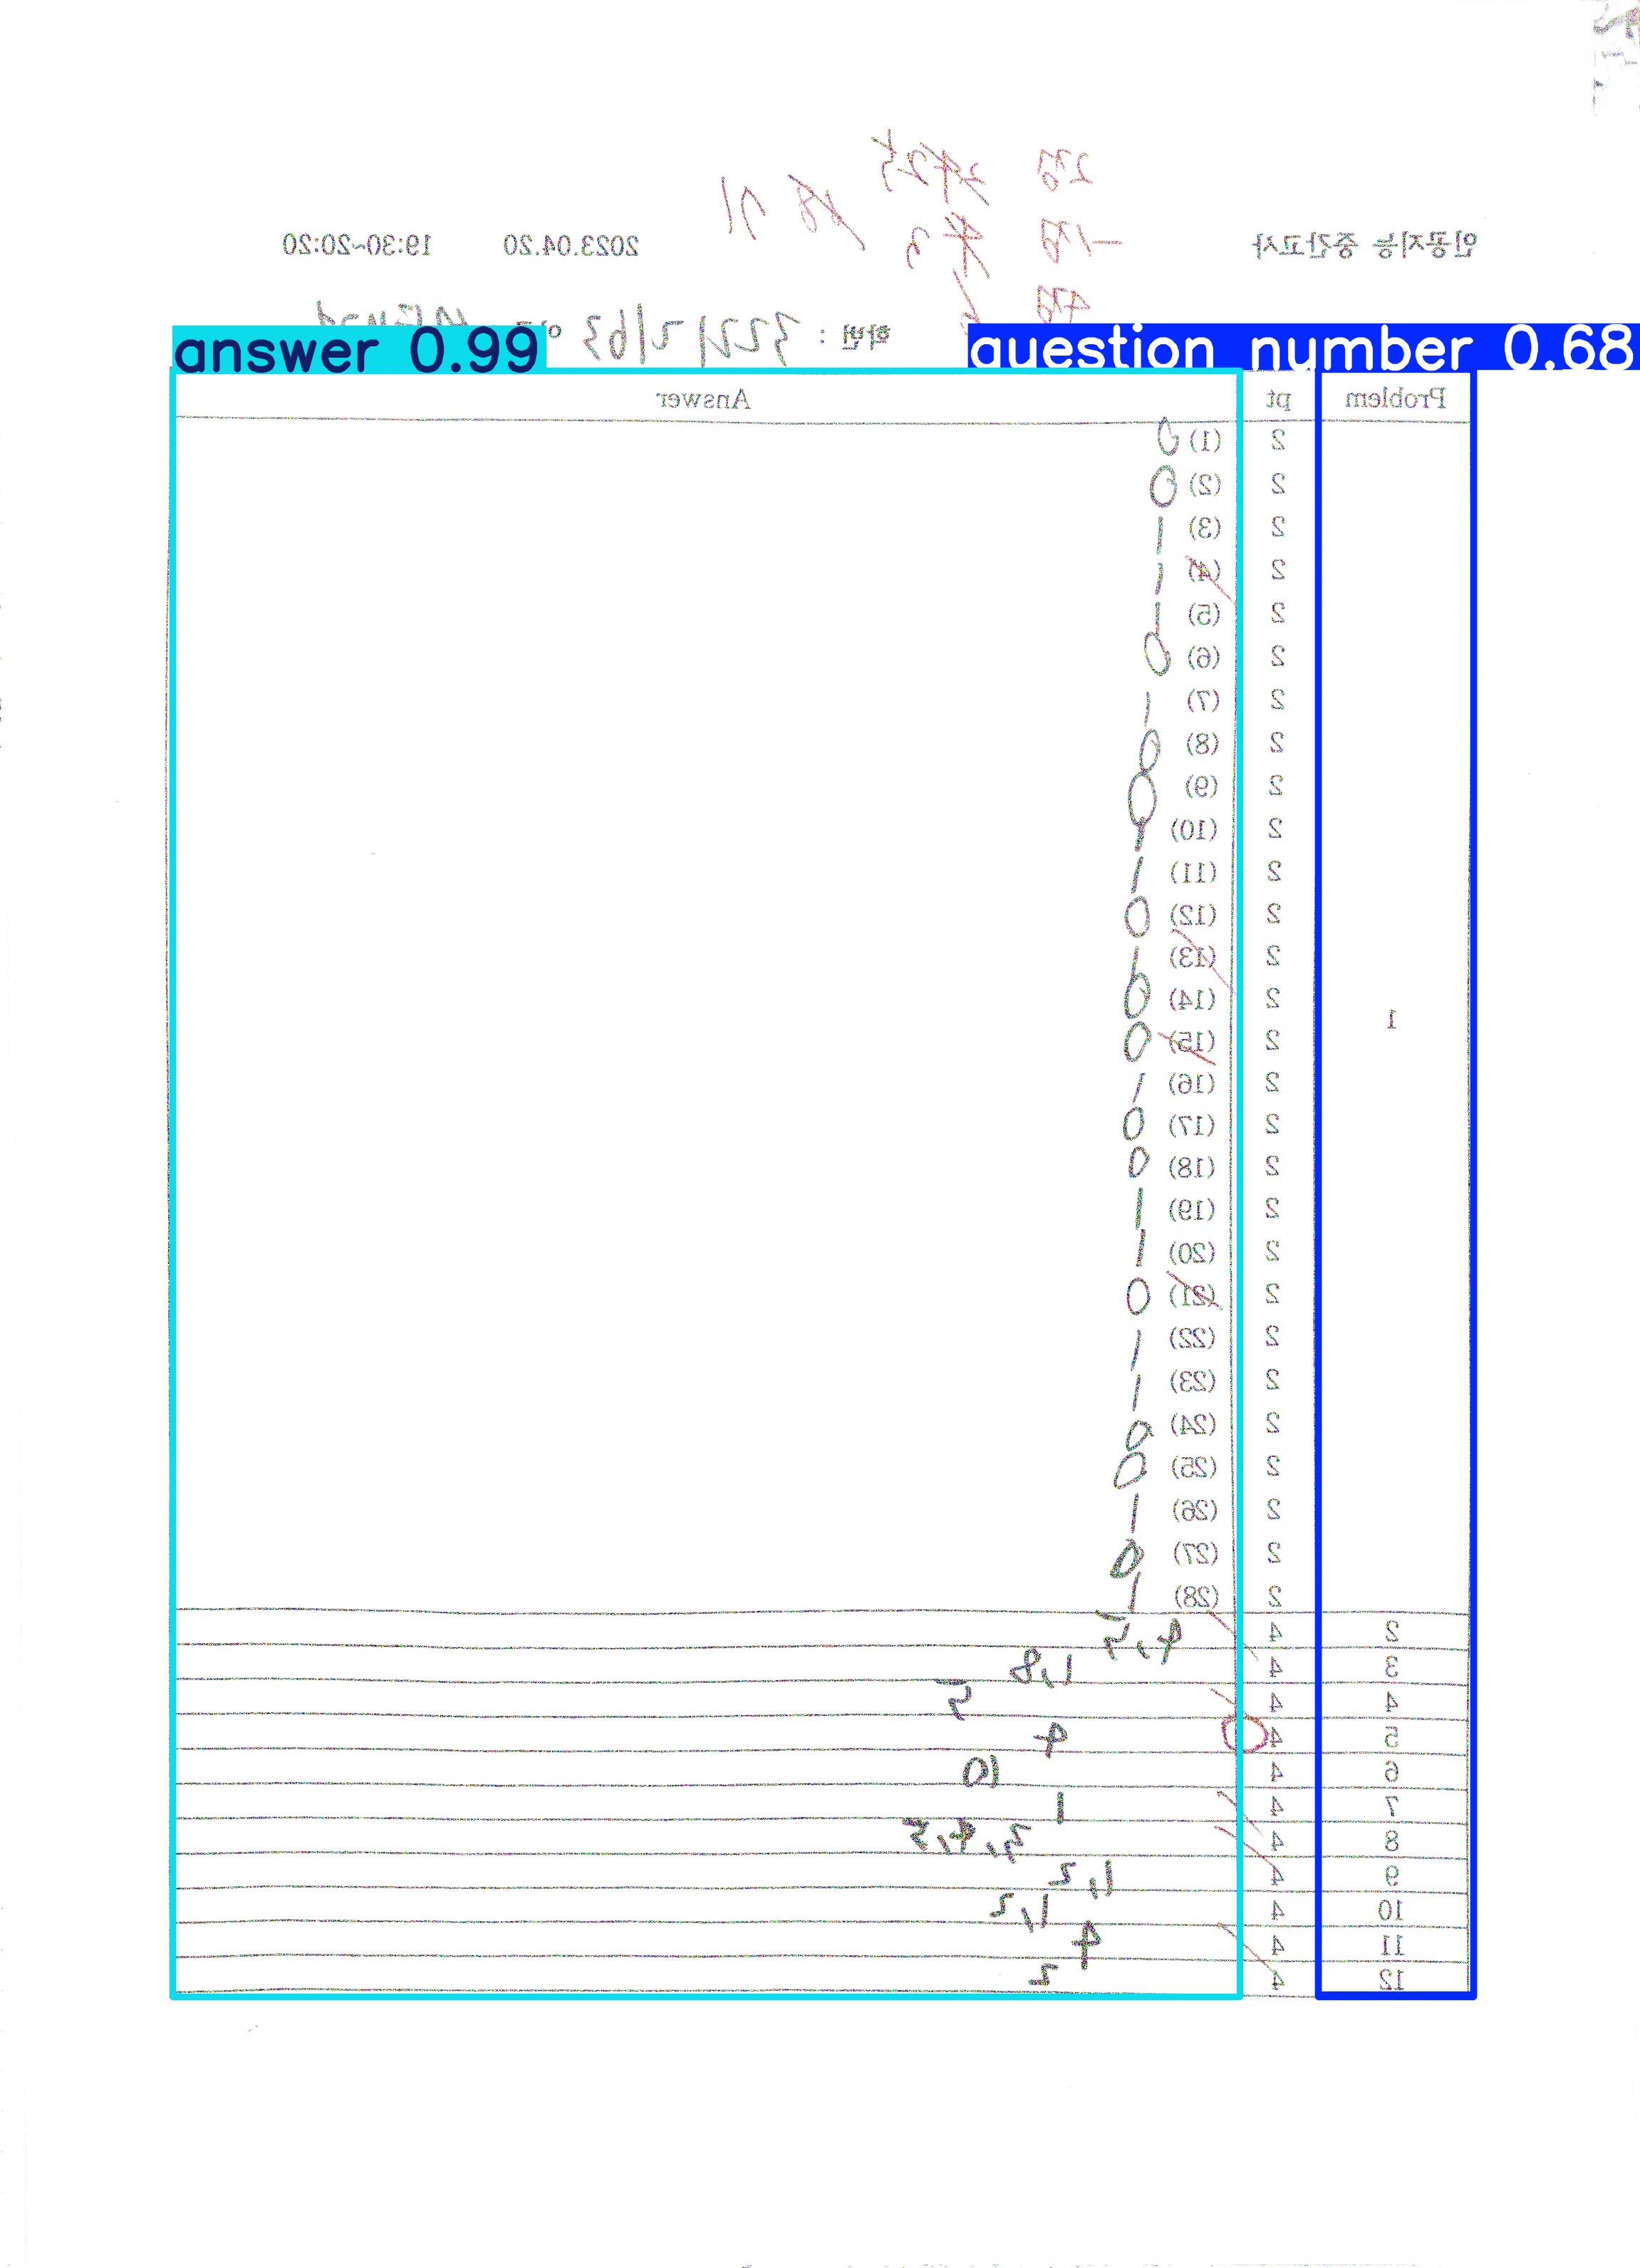 인공지능 중간고사 2023.04.20 19:30~20:20
학번 : 32212163
answer 0.99 question number 0.68
Problem pt Answer
2 (1) 0
2 (2) 0
2 (3) 1
2 (4) 1
2 (5) 1
2 (6) 0
2 (7) 1
2 (8) 0
2 (9) 0
2 (10) 1
2 (11) 1
2 (12) 0
2 (13) 1
2 (14) 0
1 2 (15) 0
2 (16) 1
2 (17) 0
2 (18) 0
2 (19) 1
2 (20) 1
2 (21) 0
2 (22) 1
2 (23) 1
2 (24) 0
2 (25) 0
2 (26) 1
2 (27) 0
2 (28) 1
2 4 4,5
3 4 1,8
4 4 5
5 4 4
6 4 10
7 4 1
8 4 3,4,5
9 4 1,2
10 4 1,2
11 4 4
12 4 2